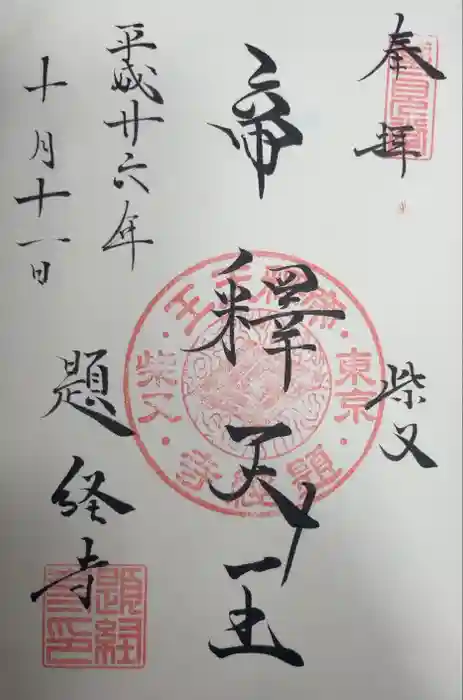 奉拝
柴又
帝釋天王
平成廿六年
十月十一日
題経寺
帝釈天王
東京
柴又
題経寺